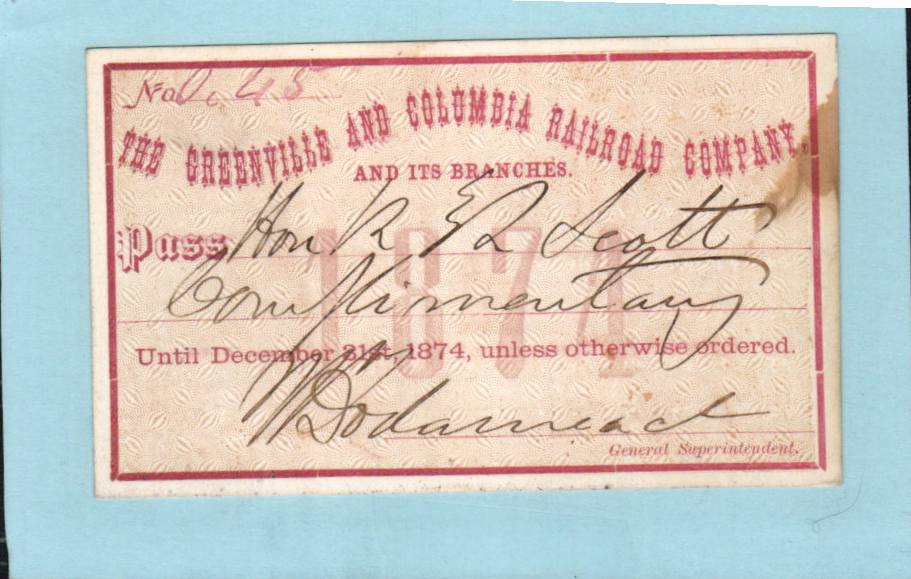 No. 45
THE GREENVILLE AND COLUMBIA RAILROAD COMPANY,
AND ITS BRANCHES.
Pass Hon R Scott
1874
Complimentary
Until December 31st 1874, unless otherwise ordered.
General Superintendent.